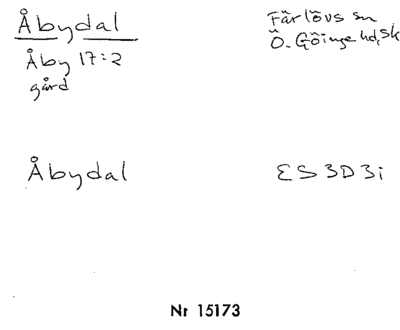 Åbydal
Färlövs sn
Ö. Göinge hd, Sk
Åby 17:2
gård
Åbydal
ES 3D 3i
Nr 15173